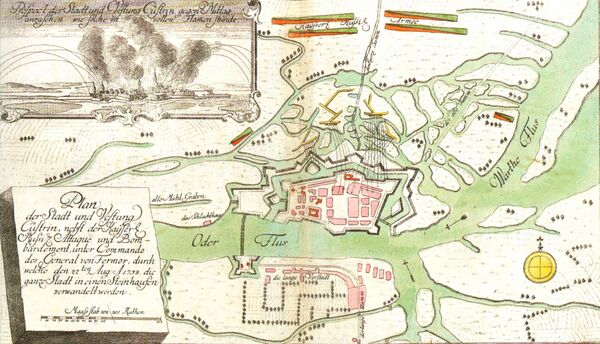 Prospect der Stadt und Vestung Cüstrin gegen Mittag
anzusehen wie solche in vollen Flamen stunde
Kayserl. Rusis. Armee
Plan
der Stadt und Vestung
Cüstrin, nebst der Kayserl.
Rusis. Attaque und Bom-
bardement, unter Commando
des General von Fermor, durch
welche den 22ten Aug. A. 1758 die
ganze Stadt in einen Steinhaufen
verwandelt worden
Maasstab von 200 Ruthen
alter Mühl Graben
Oder Flus
Warthe Flus
die lange Vorstadt